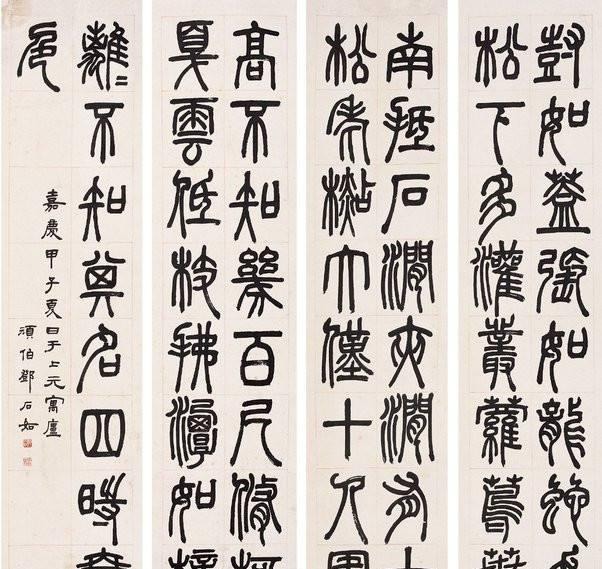 尌如蓋張如龍蛇
松下多灌叢蘿蔦葉
南抵石澗夾澗有
松老檆大僅十人圍
高不知幾百尺脩柯
戛雲低枝拂潭如幢
離〻不知其名四時
色
嘉慶甲子夏日于上元寓廬
頑伯鄧石如